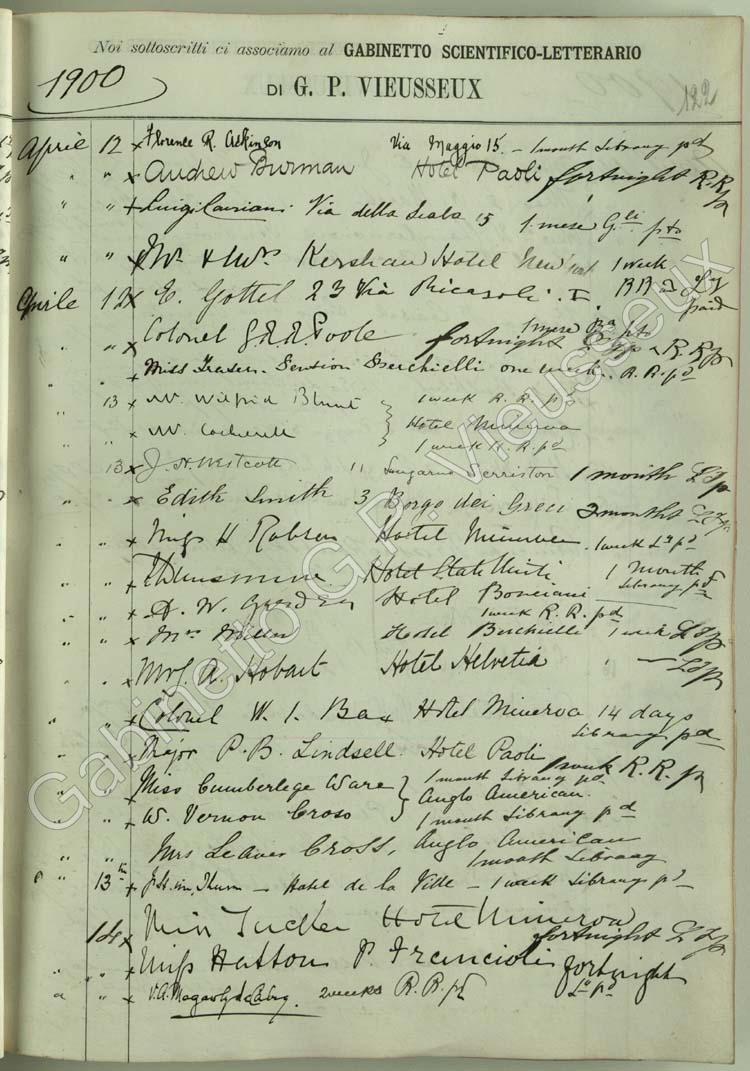 Noi sottoscritti ci associamo al GABINETTO SCIENTIFICO-LETTERARIO
1900
DI G. P. VIEUSSEUX
122
Aprile 12 x Florence R. Atkinson Via Maggio 15. - 1 month Library pd
" " x Andrew Burman Hotel Paoli fortnight R.R. p
" " x Luigi Via della Scala 15 1 mese pto
" " x Mr & Mrs Kershaw Hotel New 1 week
Aprile 12 x E. Gottel 23 Via Ricasoli. I. R R & Ly paid
1 mese pto
" " x Colonel G.R.A. Poole fortnight R.R.p
" " x Miss Fraser. Pension one week. R.R. pd
13 x W. Wilfrid Blunt 1 week R.R. pd
" x W. Cockerell } Hotel Minerva
1 week R.R. pd
13 x J.H. Westcott 11 Lungarno Serristori 1 month
" " x Edith Smith 3 Borgo dei Greci 2 months
" " x Miss H Robson Hotel Minerva. 1 week Ly pd
" " x Hotel 1 Month
Library pd
" " x D. W. Hotel Bonciani
1 week R. R. pd
" " x Mrs Hotel Berchielli 1 week
" " x Mrs A. Hobart Hotel Helvetia "
" " x Colonel W. I. Bax Hotel Minerva 14 days
Library pd
" " x Major P. B. Lindsell. Hotel Paoli
1 week R. R. p
" " x Miss Cumberlege Ware } 1 month Library pd
Anglo American.
" " x W. Vernon Cross 1 month Library pd
" " Mrs Leaver Cross, Anglo American
1 month Library
" 13th x Hotel de la Ville - 1 week Library pd
14 x Miss Tucker Hotel Minerva
fortnight
" " x Miss Hatton P. Francioli fortnight
Ly pd
" " x V.A. Magawly de Calry. 2 weeks R.R. pd
Gabinetto G.P. Vieusseux